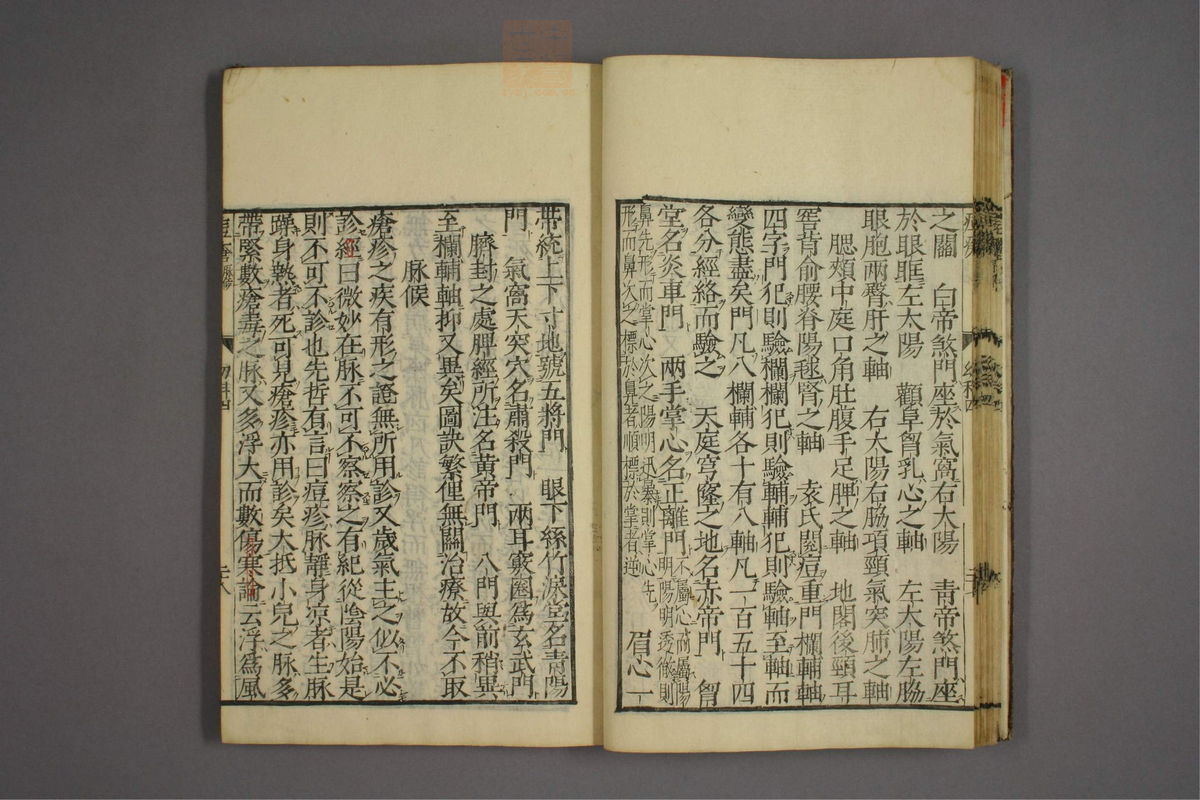 之關　白帝煞門座於氣窩右太陽　青帝煞門座
於眼眶左太陽　顴阜胷乳心之軸　左太陽左脇
眼胞兩臀肝之軸　右太陽右脇項頸氣突肺之軸
腮頰中庭口角肚腹手足脾之軸　地閣後頸耳
窖背俞腰脊陽毬腎之軸　袁氏閱痘重門欄輔軸
四字門犯則驗欄欄犯則驗輔輔犯則驗軸至軸而
變態盡矣門凡八欄輔各十有八軸凡一百五十四
各分經絡而驗之　天庭穹窿之地名赤帝門　胷
堂名炎車門　兩手掌心名正離門不屬心而屬陽明陽明透徹則
鼻先形而掌心次之陽明迅暴則掌心先形而鼻次之標於鼻者順標於掌者逆　眉心一
帶統上下寸地號五將門　眼下絲竹淚堂名青陽
門　氣窩天突穴名肅殺門　兩耳竅圈爲玄武門
臍封之處脾經所注名黃帝門　八門與前稍異
至欄輔軸抑又異矣圖訣繁俚無關治療故今不取
脉候
瘡疹之疾有形之證無所用診又歲氣主之似不必
診經曰微妙在脉不可不察察之有紀從陰陽始是
則不可不診也先哲有言曰痘疹脉靜身凉者生脉
躁身熱者死可見瘡疹亦用診矣大抵小兒之脉多
帶緊數瘡毒之脉又多浮大而數傷寒論云浮爲風
幼科四